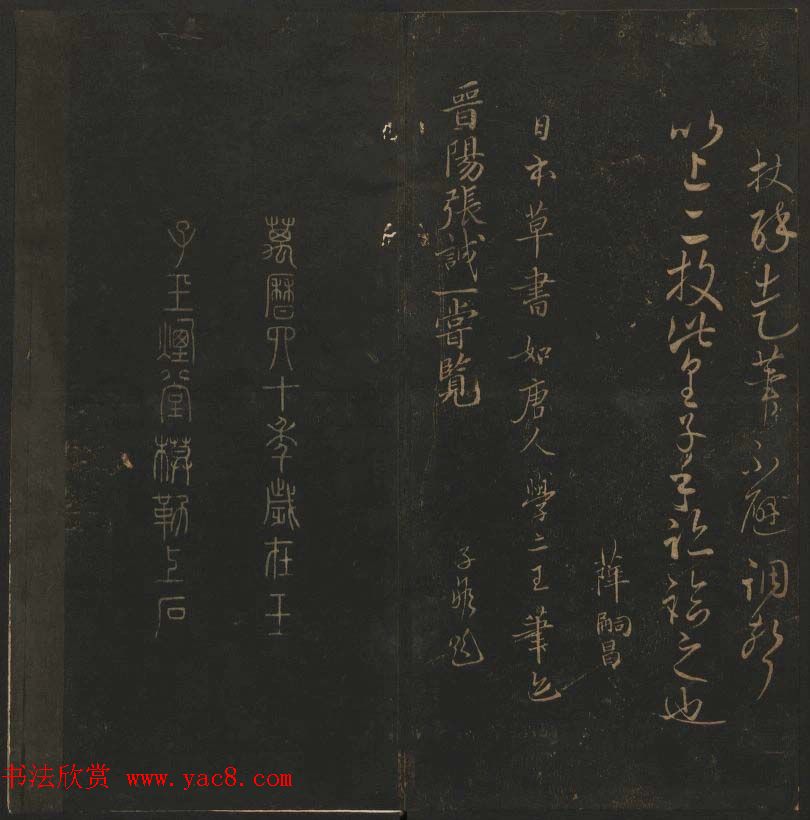 走筆不調
以上二枚皇子之也
薛嗣昌
日本草書如唐人學二王筆也
晉陽張誠一嘗覽
子題
萬曆四十年歲在壬
子玉煙堂模勒上石
书法欣赏 www.yac8.com